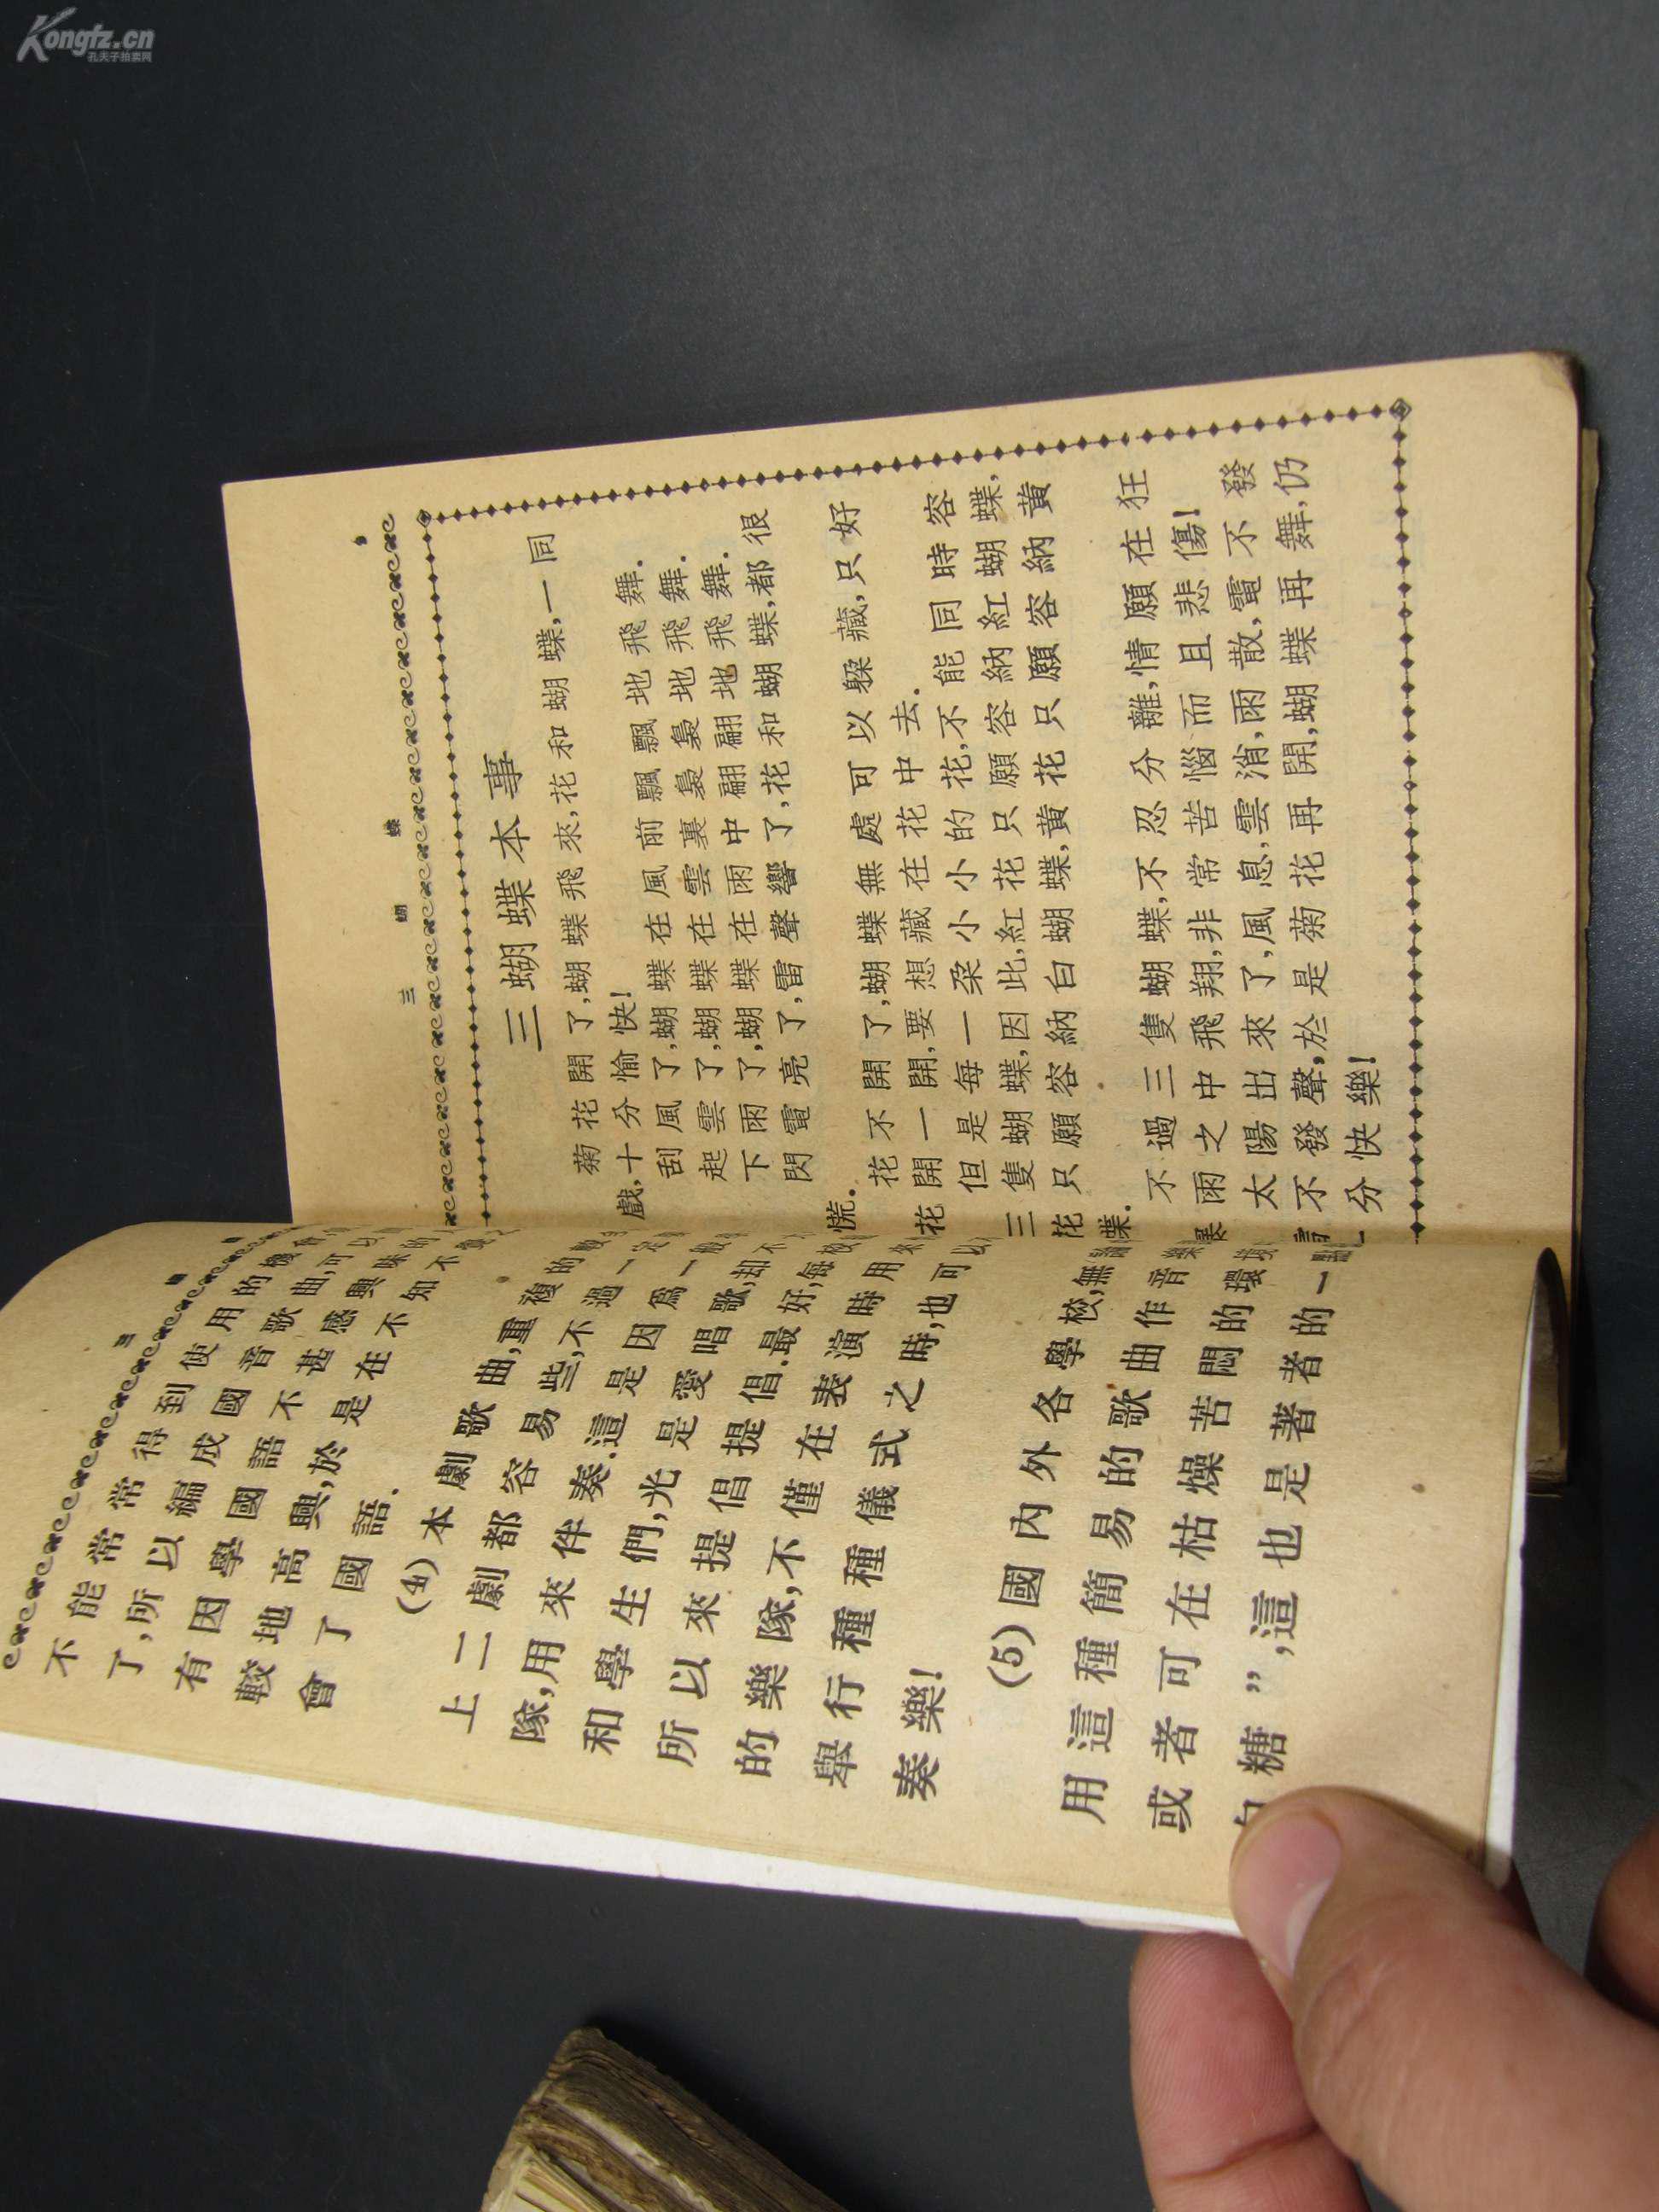 Kongfz.cn
孔夫子拍卖网
三
不能常常得到使用的機會
了,所以編成國音歌曲,可以
有因學國語不甚感興味的
較地高興,於是在不知不
會了國語.
(4)本劇歌曲,重複的
上二劇都容易些,不過一定
隊,用來伴奏.這是因爲一般
和學生們,光是愛唱歌,却不
所以來提倡提倡.最好,每校
的樂隊,不僅在表演時用來
舉行種種儀式之時,也可以
奏樂!
(5)國內外各學校,無
用這種簡易的歌曲作音樂
或者可在枯燥苦悶的環
糖”,這也是著者的一點
三 蝴 蝶
三蝴蝶本事
菊花開了,蝴蝶飛來,花和蝴蝶,一同
戲,十分愉快!
刮風了,蝴蝶在風前飄飄地飛舞.
起雲了,蝴蝶在雲裏裊裊地飛舞.
下雨了,蝴蝶在雨中翩翩地飛舞.
閃電亮了,雷聲響了,花和蝴蝶,都很
慌.
花不開了,蝴蝶無處可以躱藏,只好
花開一開,要想藏在花中去.
但是每一朶小小的花,不能同時容
三隻蝴蝶,因此,紅花只願容納紅蝴蝶,
花只願容納白蝴蝶,黄花只願容納黄
蝶.
不過三隻蝴蝶,不忍分離,情願在狂
暴雨之中飛翔,非常苦惱而且悲傷!
太陽出來了,風息,雲消,雨散,電不發
不發聲,於是菊花再開,蝴蝶再舞,仍
分快樂!